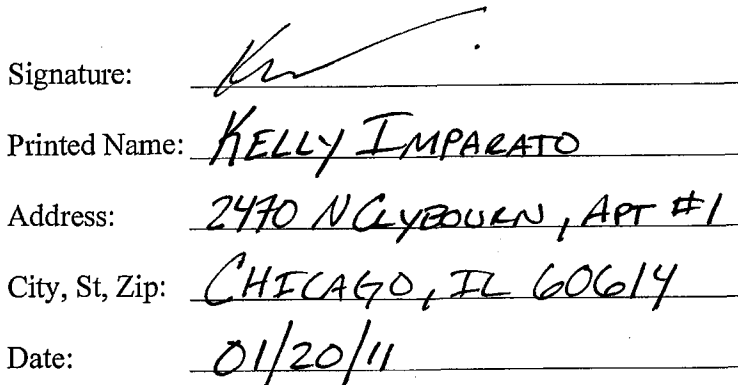 Signature:
Printed Name: KELLY IMPARATO
Address: 2470 N CLYBOURN, APT #1
City, St, Zip: CHICAGO, IL 60614
Date: 01/20/11